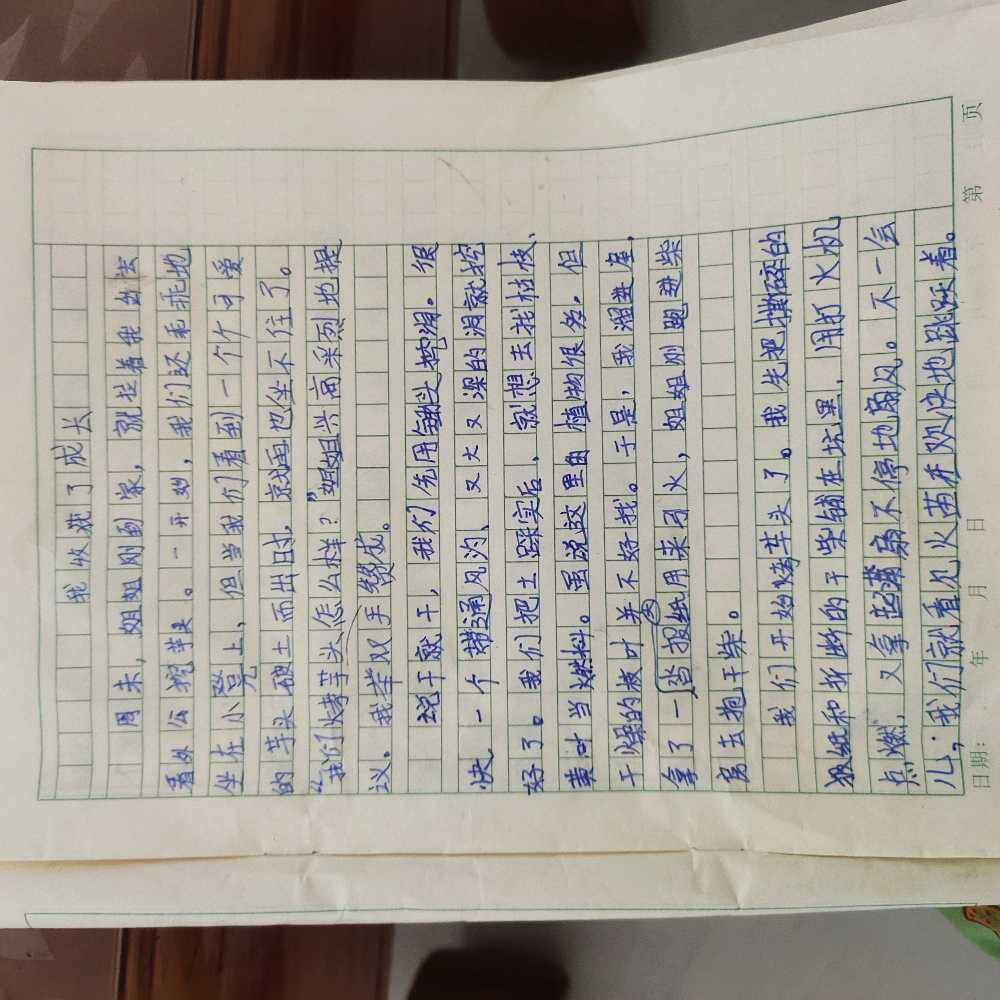 我收获了成长
周末，姐姐刚到家，就拉着我出去
看外公挖芋头。一开始，我们还乖乖地
坐在小凳上，但当我们看到一个个可爱
的芋头破土而出时，就再也坐不住了。
“我们烤芋头怎么样？”姐姐兴高采烈地提
议。我举双手赞成。
说干就干，我们先用锄头挖洞。很
快，一个带通风沟、又大又深的洞就挖
好了。我们把土踩实后，就想去找枯枝、
黄叶当燃料。虽说这里由植物很多，但
干燥的枝叶并不好找。于是，我溜进屋，
拿了一沓报纸用来引火，姐姐则跑进柴
房去抱干柴。
我们开始烤芋头了。我先把撕碎的
报纸和折断的干柴铺在坑里，用打火机
点燃，又拿起蒲扇不停地扇风。不一会
儿，我们就看见火苗在欢快地跳跃着。
日期： 年 月 日 第 页